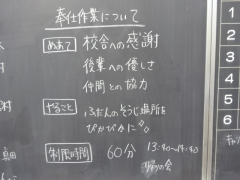 奉仕作業について
めあて 校舎への感謝
後輩への優しさ
仲間との協力
やること ふだんのそうじ場所を
ぴかぴかに
制限時間 60分 13:40~14:40
帰りの会
1
2
3
4
5
6